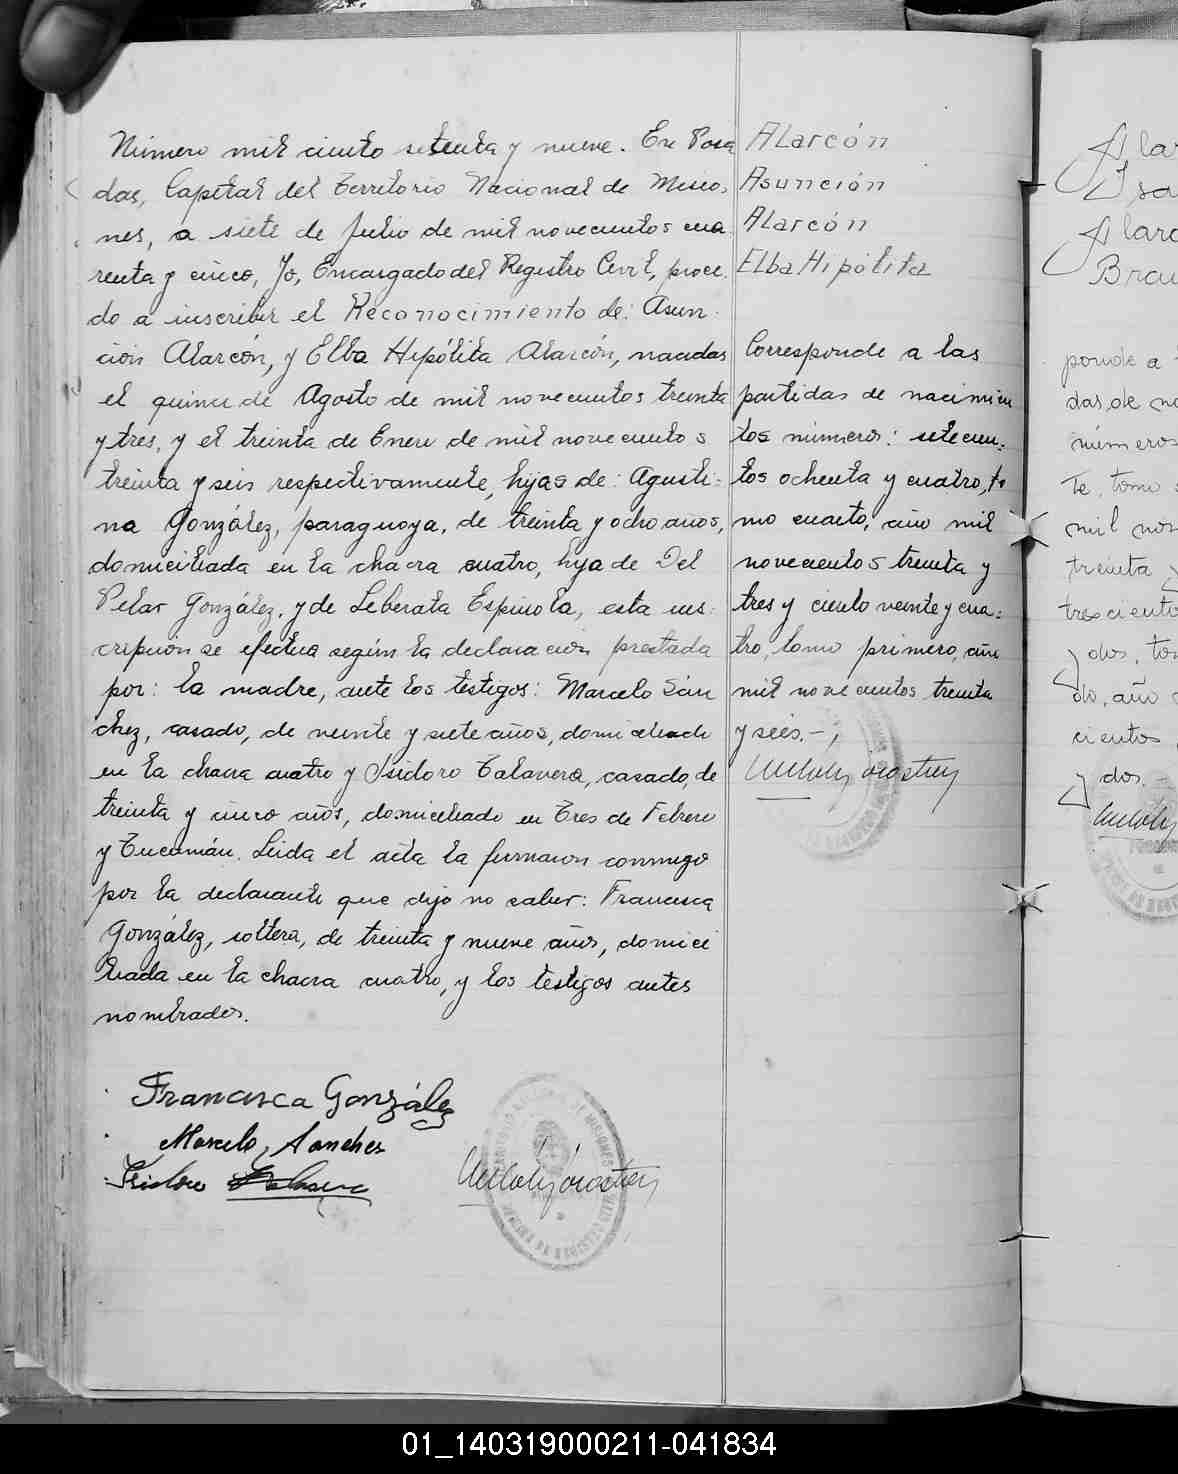 Número mil ciento setenta y nueve. En Posa
das, Capital del Territorio Nacional de Misio,
nes, a siete de Julio de mil novecientos cua
renta y cinco, Yo, Encargado del Registro Civil, proce.
do a inscribir el Reconocimiento de: Asun
ción Alarcón, y Elba Hipólita Alarcón, nacidas
el quince de Agosto de mil novecientos treinta
y tres, y el treinta de Enero de mil novecientos
treinta y seis respectivamente, hijas de: Agusti=
na González, paraguaya, de treinta y ocho años,
domiciliada en la chacra cuatro, hija de Del
Pilar González, y de Liberata Espinola, esta ins
cripción se efectua según la declaración prestada
por: la madre, ante los testigos: Marcelo Sán
chez, casado, de veinte y siete años, domiciliado
en la chacra cuatro y Isidoro Talavera, casado, de
treinta y cinco años, domiciliado en Tres de Febrero
y Tucumán. Leida el acta la firmaron conmigo
por la declarante que dijo no saber: Francisca
González, soltera, de treinta y nueve años, domici
liada en la chacra cuatro, y los testigos antes
nombrados.
Francisca González
Marcelo, Sanches
Isidoro
Alarcón
Asunción
Alarcón
Elba Hipólita
Corresponde a las
partidas de nacimien
tos números: setecien=
tos ochenta y cuatro, to
mo cuarto, año mil
novecientos treinta y
tres y ciento veinte y cua=
tro, tomo primero, año
mil novecientos treinta
y seis.-,
Alar
Isa
Alarc
Brau
ponde a
das, de na
números
te, tomo
mil nov
treinta y
trescientos
y dos, tom
do, año
cientos
y dos.-
01_140319000211-041834